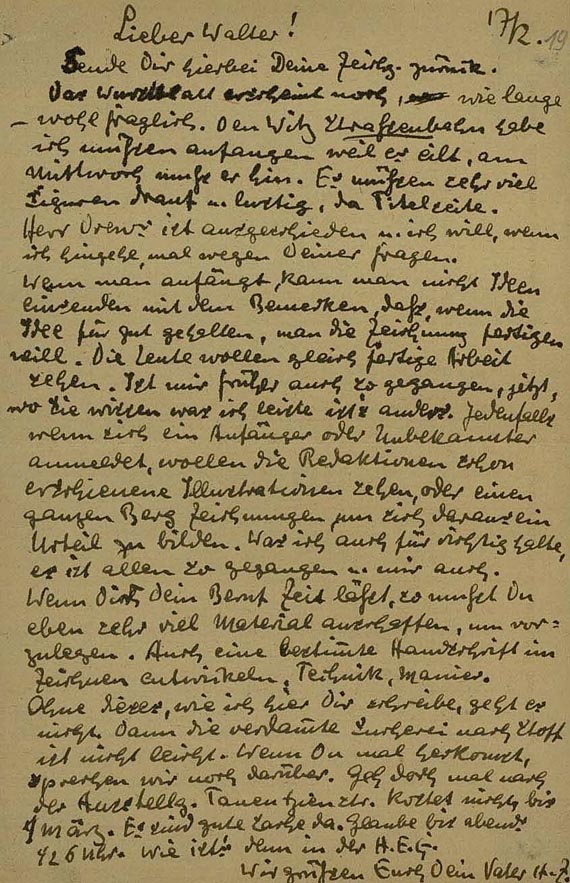 17/2. 19
Lieber Walter!
Sende Dir hierbei Deine Zeichg. zurück.
Das Wurstblatt erscheint noch, wie lange
– wohl fraglich. Den Witz Strassenbahn habe
ich müssen anfangen weil es eilt, am
Mittwoch muss er hin. Es müssen sehr viel
Figuren drauf u. lustig, da Titelseite.
Herr Drews ist ausgeschieden u. ich will, wenn
ich hingehe, mal wegen Deiner fragen.
Wenn man anfängt, kann man nicht Ideen
einsenden mit dem Bemerken, dass, wenn die
Idee für gut gehalten, man die Zeichnung fertigen
will. Die Leute wollen gleich fertige Arbeit
sehen. Ist mir früher auch so gegangen, jetzt,
wo sie wissen was ich leiste ist's anders. Jedenfalls
wenn sich ein Anfänger oder Unbekannter
anmeldet, wollen die Redaktionen schon
erschienene Illustrationen sehen, oder einen
ganzen Berg Zeichnungen um sich daraus ein
Urteil zu bilden. Was ich auch für richtig halte,
es ist allen so gegangen u. mir auch.
Wenn Dir Dein Beruf Zeit lässt, so musst Du
eben sehr viel Material anschaffen, um vor=
zulegen. Auch eine bestimte Handschrift im
Zeichnen entwickeln, Technik, Manier.
Ohne dieses, wie ich hier Dir schreibe, geht es
nicht. Dann die verdamte Sucherei nach Stoff
ist nicht leicht. Wenn Du mal herkomst,
sprechen wir noch darüber. Geh doch mal nach
der Ausstellg. Tauentzienstr. Kostet nichts, bis
März. Es sind gute Sache da. Glaube bis abends
Uhr. Wie ist's denn in der H.E.G.
Wir grüssen Euch Dein Vater